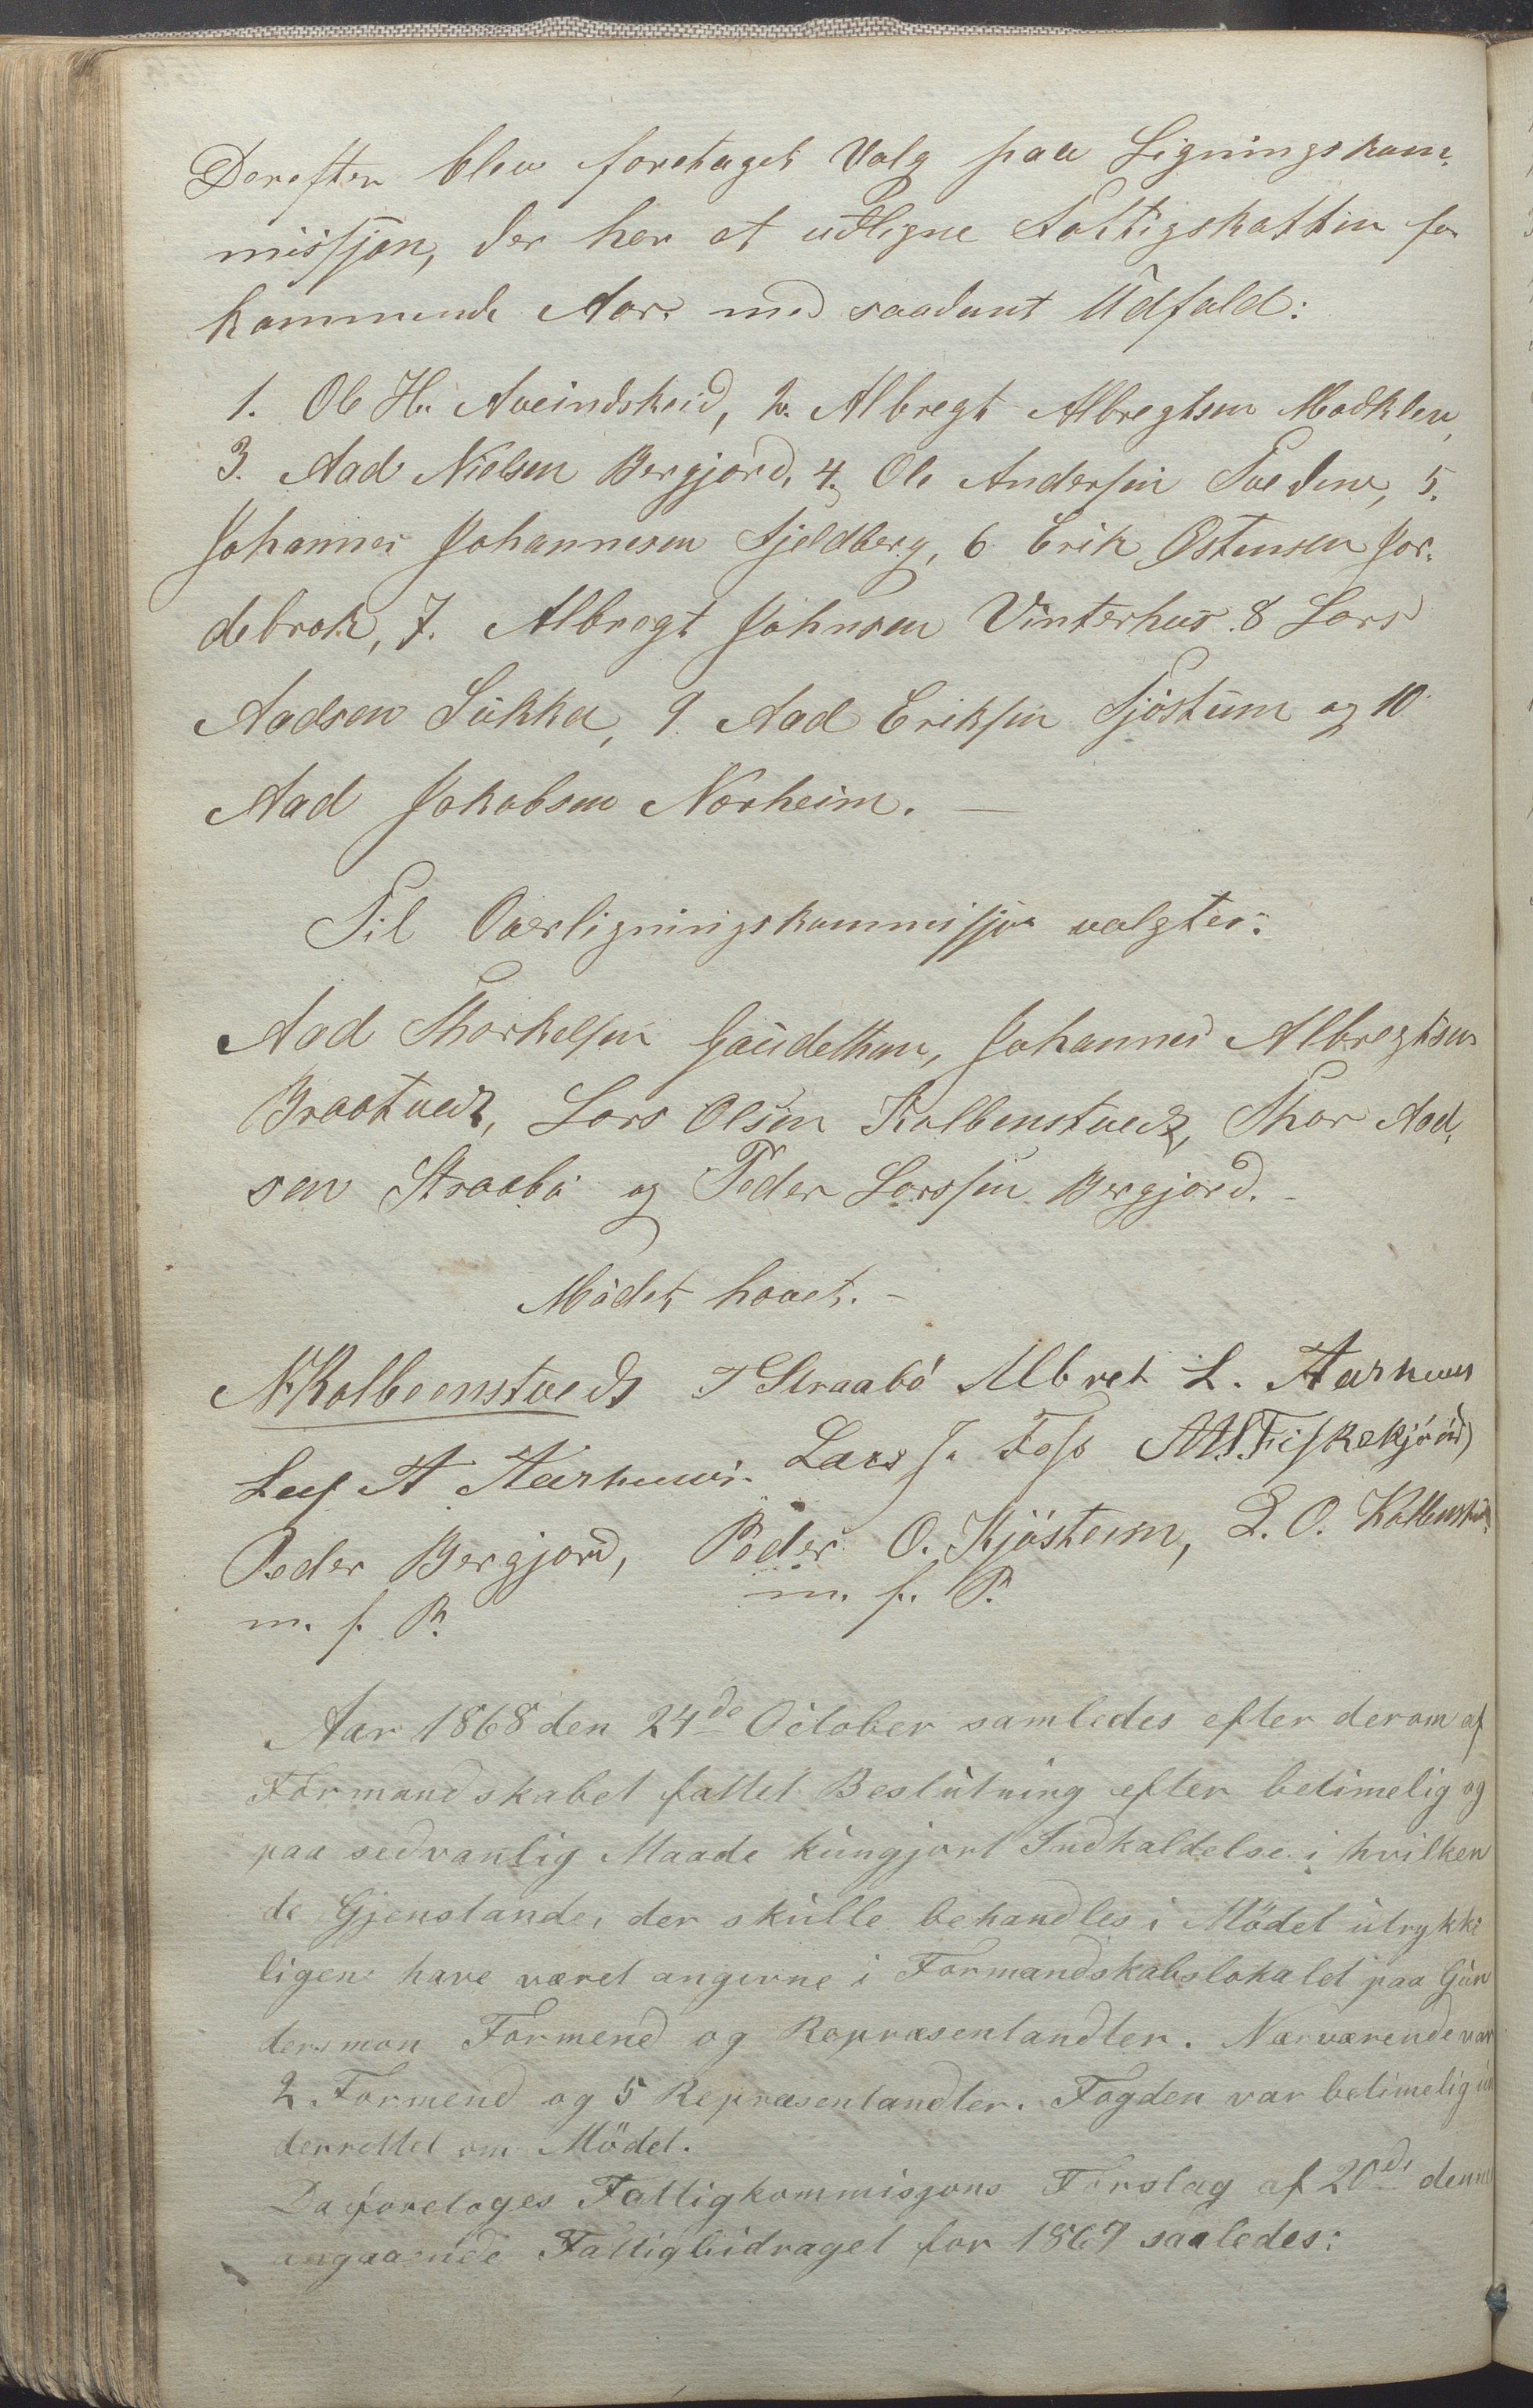 Derefter blev foretaget Valg paa Ligningskom-
missjon, der har at udligne Fattigskatten for
kommende Aar med saadant Udfald:
1. Ole H. Aveindskeid, 2. Albregt Albregtsen Modklev,
3. Aad Nielsen Bergjord, 4. Ole Andersen Tveden, 5.
Johannes Johannesen Fjeldberg, 6 Erik Østensen Jor-
debrok, 7. Albregt Johnsen Vinterhus. 8 Lars
Aadsen Sukka, 9. Aad Eriksen Sjøstum og 10
Aad Jakobsen Norheim. —
Til Overligningskommissjon valgtes:
Aad Thorkelsen Gaudethun, Johannes Albregtsen
Braatvedt, Lars Olsen Kolbenstvedt, Thor Aad-
sen Straabø og Peder Larssen Bergjord. -
Mødet hævet. -
N Kolbeenstvedt T Straabø Albret L. Aarhuus
Leif A Aarhuus. Lars J. Foss M. S. Fiskekjøød
Peder Bergjord, Peder O. Kjøsteim, L. O. Kolbenstvedt
m. f. P. m. f. P.
Aar 1868 den 24de October samledes efter derom af
Formandskabet fattet Beslutning efter betimelig og
paa sedvanlig Maade kungjort Indkaldelse i hvilken
de Gjenstande, der skulle behandles i Mödet utrykke
ligen have været angivne i Formandskabslokalet paa Gun
dersmon Formend og Repræsentandter. Nærværende var
2 Formend og 5 Repræsentandter. Fogden var betimelig un
derrettet om Mödet.
Da foretoges Fattigkommisjons Forslag af 20de dennes
angaaende Fattigbidraget for 1869 saaledes: